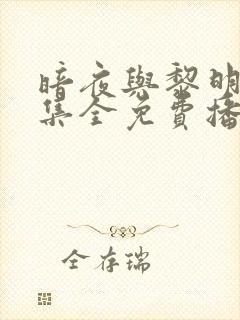 暗夜與黎明
集全免費播
全存瑞